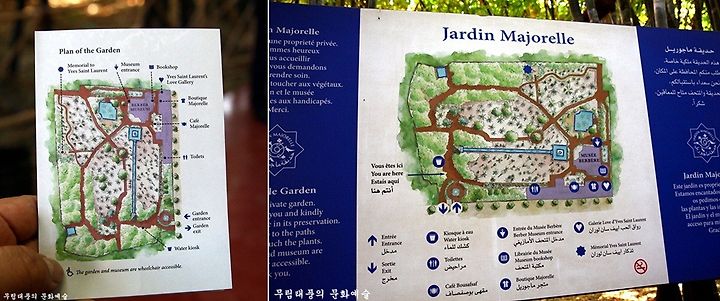 Plan of the Garden
Memorial to
Yves Saint Laurent
Museum
entrance
Bookshop
Yves Saint Laurent's
Love Gallery
BERBER
MUSEUM
Boutique
Majorelle
Café
Majorelle
Toilets
Garden
entrance
Garden
exit
Water kiosk
The garden and museum are wheelchair accessible.
무림태풍의 문화예술
in Majorelle
une propriété privée.
mmes heureux
us accueillir
vous demandons
rendre soin.
toucher aux végétaux.
n et le musée
es aux handicapés.
Merci.
lle Garden
ivate garden.
you and kindly
e in its preservation.
to the paths
uch the plants.
nd museum are
essible.
k you.
Jardin Majorelle
MUSÉE
BERBÈRE
Vous êtes ici
You are here
Estais aquí
أنتم هنا
Entrée
Entrance
مدخل
Sortie
Exit
مخرج
Kiosque à eau
Water kiosk
كشك للماء
Toilettes
Toilets
مراحيض
Café Bousafsaf
مقهى بوصفصاف
Entrée du Musée Berbère
Berber Museum entrance
مدخل المتحف الأمازيغي
Librairie du Musée
Museum bookshop
مكتبة المتحف
Boutique Majorelle
متجر ماجوريل
Galerie Love d'Yves Saint Laurent
رواق الحب إيف سان لوران
Mémorial Yves Saint Laurent
تذكار إيف سان لوران
حديقة ماجوريل
Jardin Maj
Este jardín es propie
Estamos encantados
os pedimos
las plantas y las i
El jardín y el m
acceso para m
Grac
무림태풍의 문화예술